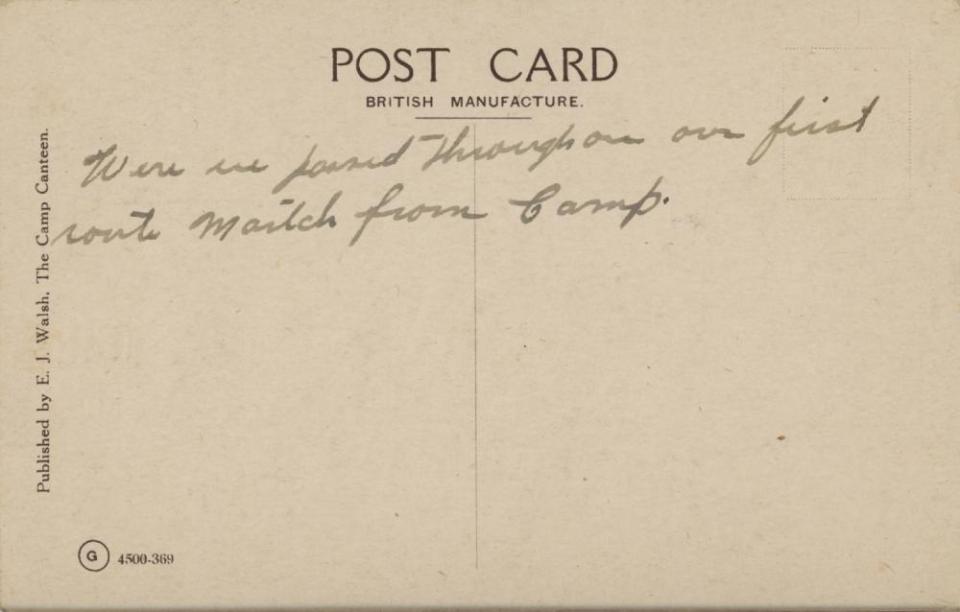 POST CARD
BRITISH MANUFACTURE.
Were we passed through on our first
route Maitch from Camp.
Published by E. J. Walsh, The Camp Canteen.
G 4500-369